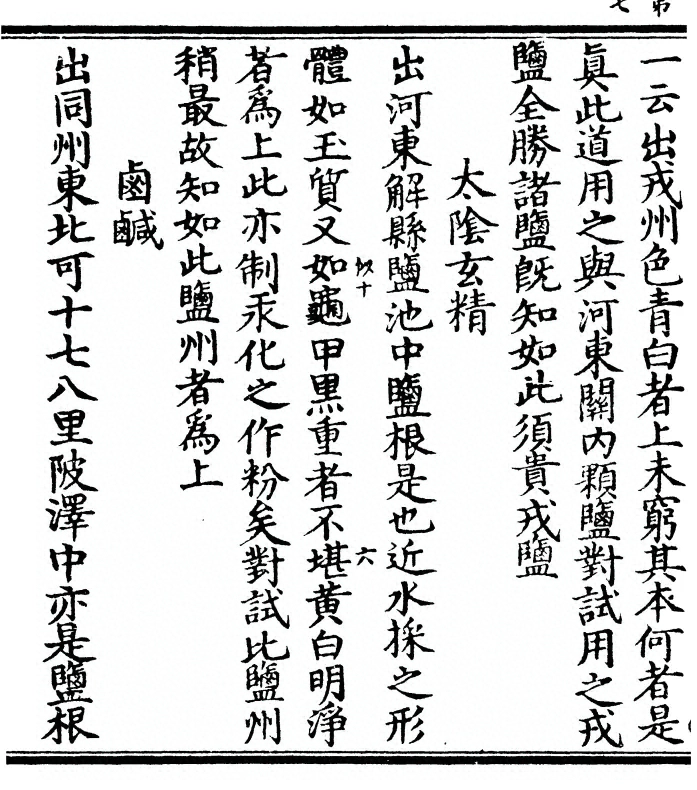 一云出戎州色青白者上未窮其本何者是
真此道用之與河東關內顆鹽對試用之戎
鹽全勝諸鹽旣知如此須貴戎鹽
太陰玄精
出河東解縣鹽池中鹽根是也近水採之形
體如玉質又如龜甲黑重者不堪黃白明淨
者爲上此亦制汞化之作粉矣對試比鹽州
稍最故知如此鹽州者爲上
鹵鹹
出同州東北可十七八里陂澤中亦是鹽根
六